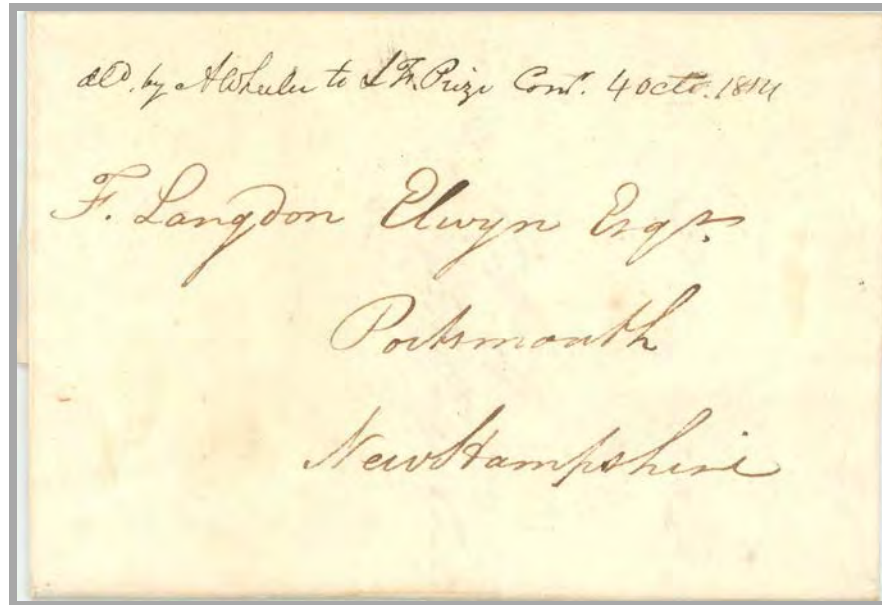 by A Wheeler to Prize 4 Octo. 1814
F. Langdon Elwyn Esqr.
Portsmouth
New Hampshire